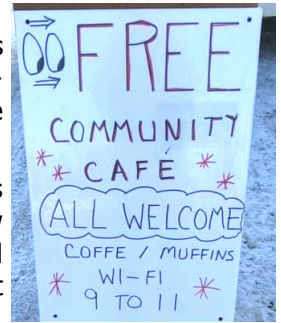 FREE
COMMUNITY
CAFÉ
ALL WELCOME
COFFE / MUFFINS
WI-FI
9 TO 11